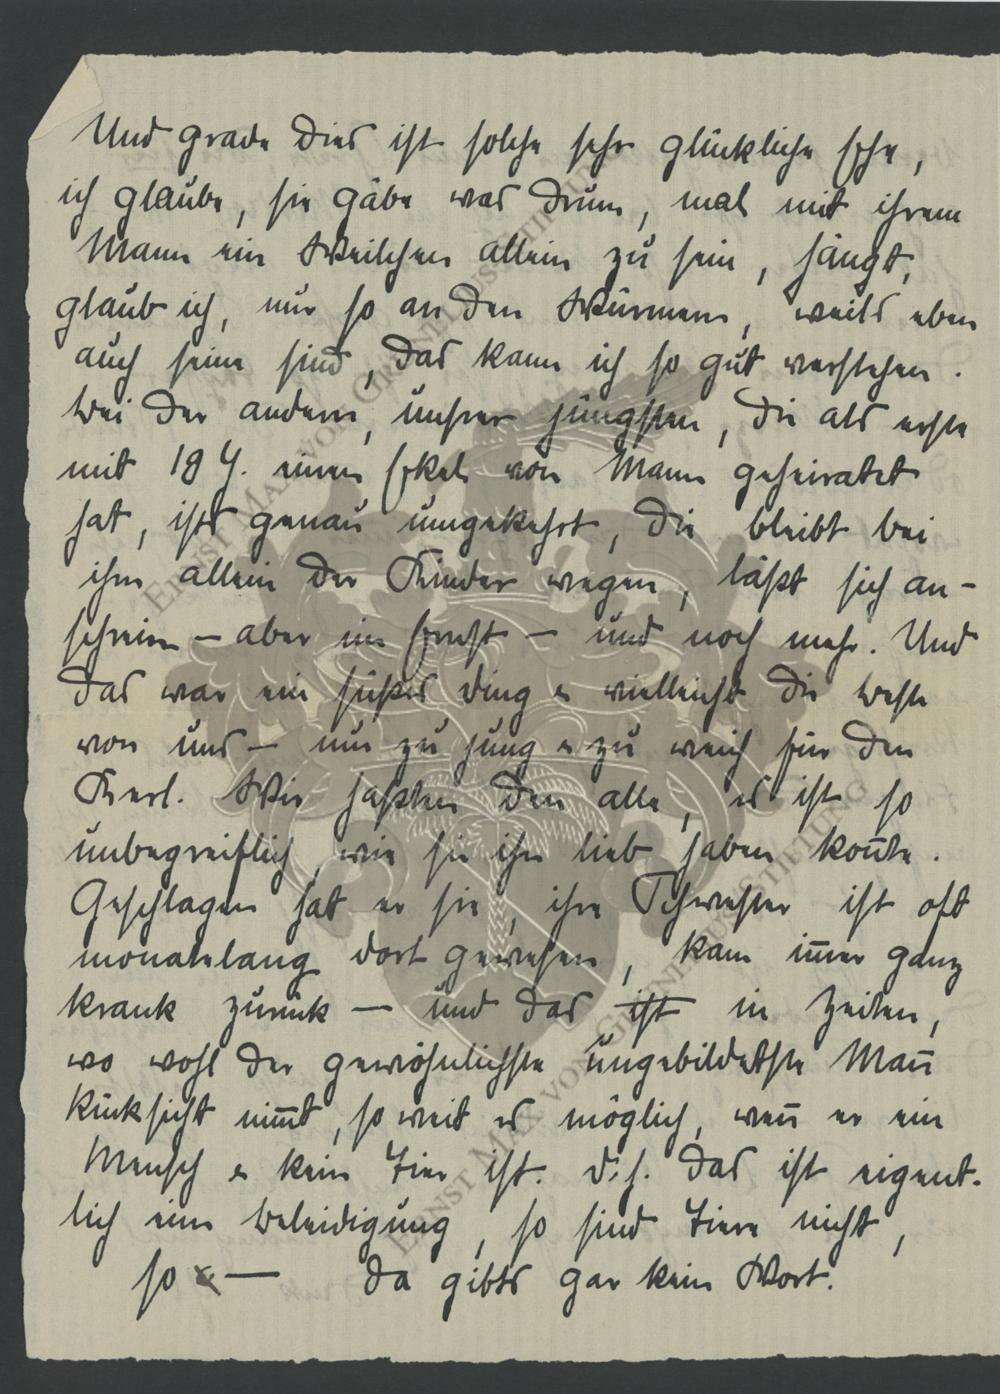 Und grade dies ist solche sehr glückliche Ehe,
ich glaube, sie gäbe was drum, mal mit ihrem
Mann ein Weilchen allein zu sein, hängt,
glaub ich, nur so an den Würmern, weils eben
auch seine sind, das kann ich so gut verstehen.
Bei der andern, unsrer jüngsten, die als erste
mit 18 J. einen Ekel von Mann geheiratet
hat, ists genau umgekehrt, die bleibt bei
ihm allein der Kinder wegen, läßt sich an-
schrein – aber im Ernst – und noch mehr. Und
das war ein süßes Ding & vielleicht die beste
von uns – nur zu jung & zu weich für den
Kerl. Wir haßten den alle, es ist so
unbegreiflich, wie sie ihn lieb haben konnte.
Geschlagen hat er sie, ihre Schwester ist oft
monatelang dort gewesen, kam im̅er ganz
krank zurück – und das ist in Zeiten,
wo wohl der gewöhnlichste ungebildetste Man̅
Rücksicht nim̅t, so weit es möglich, wen̅ er ein
Mensch & kein Tier ist. D.h. das ist eigent-
lich eine Beleidigung, so sind Tiere nicht,
so – da gibts gar kein Wort.
ERNST MAX VON GRUNELIUS-STIFTUNG
ERNST MAX VON GRUNELIUS-STIFTUNG